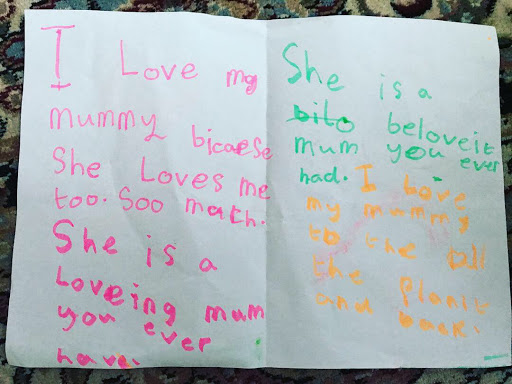 I Love my
mummy bicaese
She Loves me
too. Soo match.
She is a
Loveing mum
you ever
have.
She is a
bilo beloveit
mum you ever
had. I love
my mummy
to the all
the planit
and back.